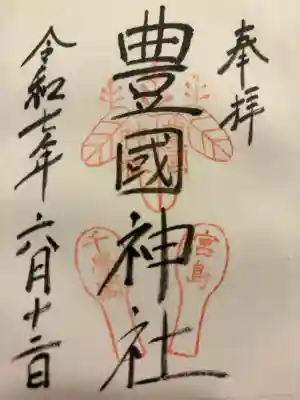 奉拝
豊國神社
宮島
千畳閣
令和七年六月十二日